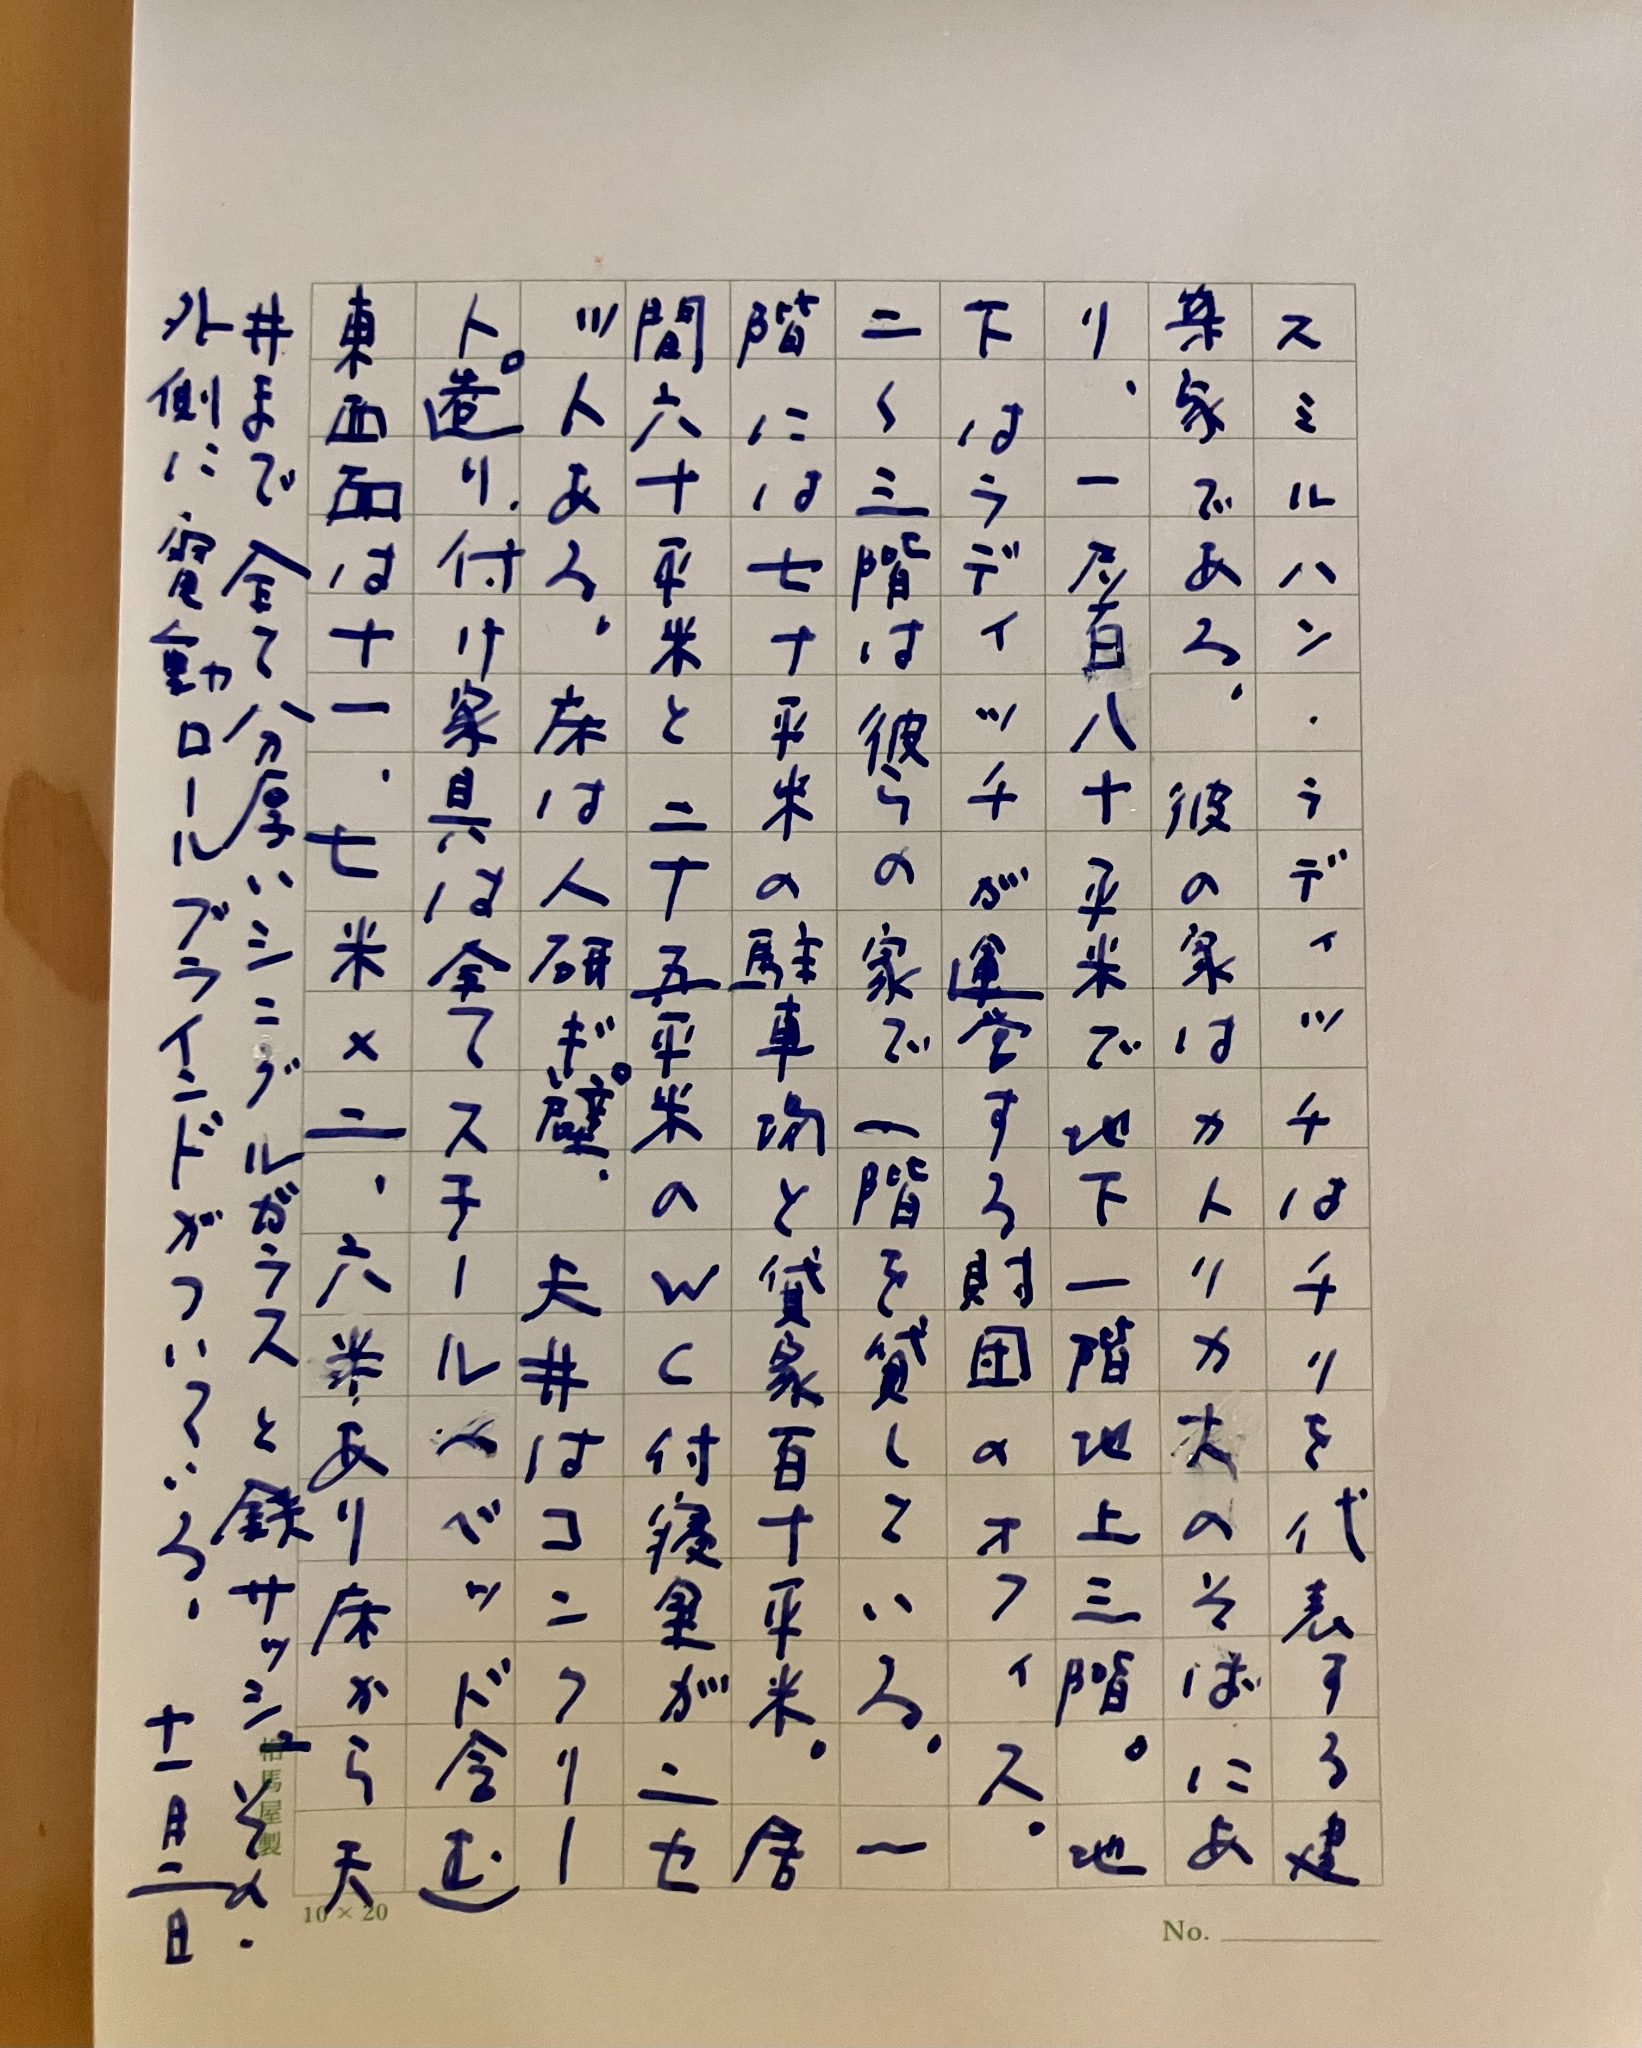 スミルハン・ラディッチはチリを代表する建
築家である。彼の家はカトリカ大のそばにあ
り、一 百八十平米で地下一階地上三階。地
下はラディッチが運営する財団のオフィス。
二〜三階は彼らの家で一階を貸している。一
階には七十平米の駐車場と貸家百十平米。居
間六十平米と二十五平米のWC付寝室が二セ
ットある。床は人研ぎ。壁.天井はコンクリー
ト。造り.付け家具は全てスチールベッド含む
東西面は十一.七米×二.六米あり床から天
井まで全て分厚いシングルガラスと鉄サッシュその.
外側に電動ロールブラインドがついている. 十一月二日
相馬屋製
10 × 20
No.